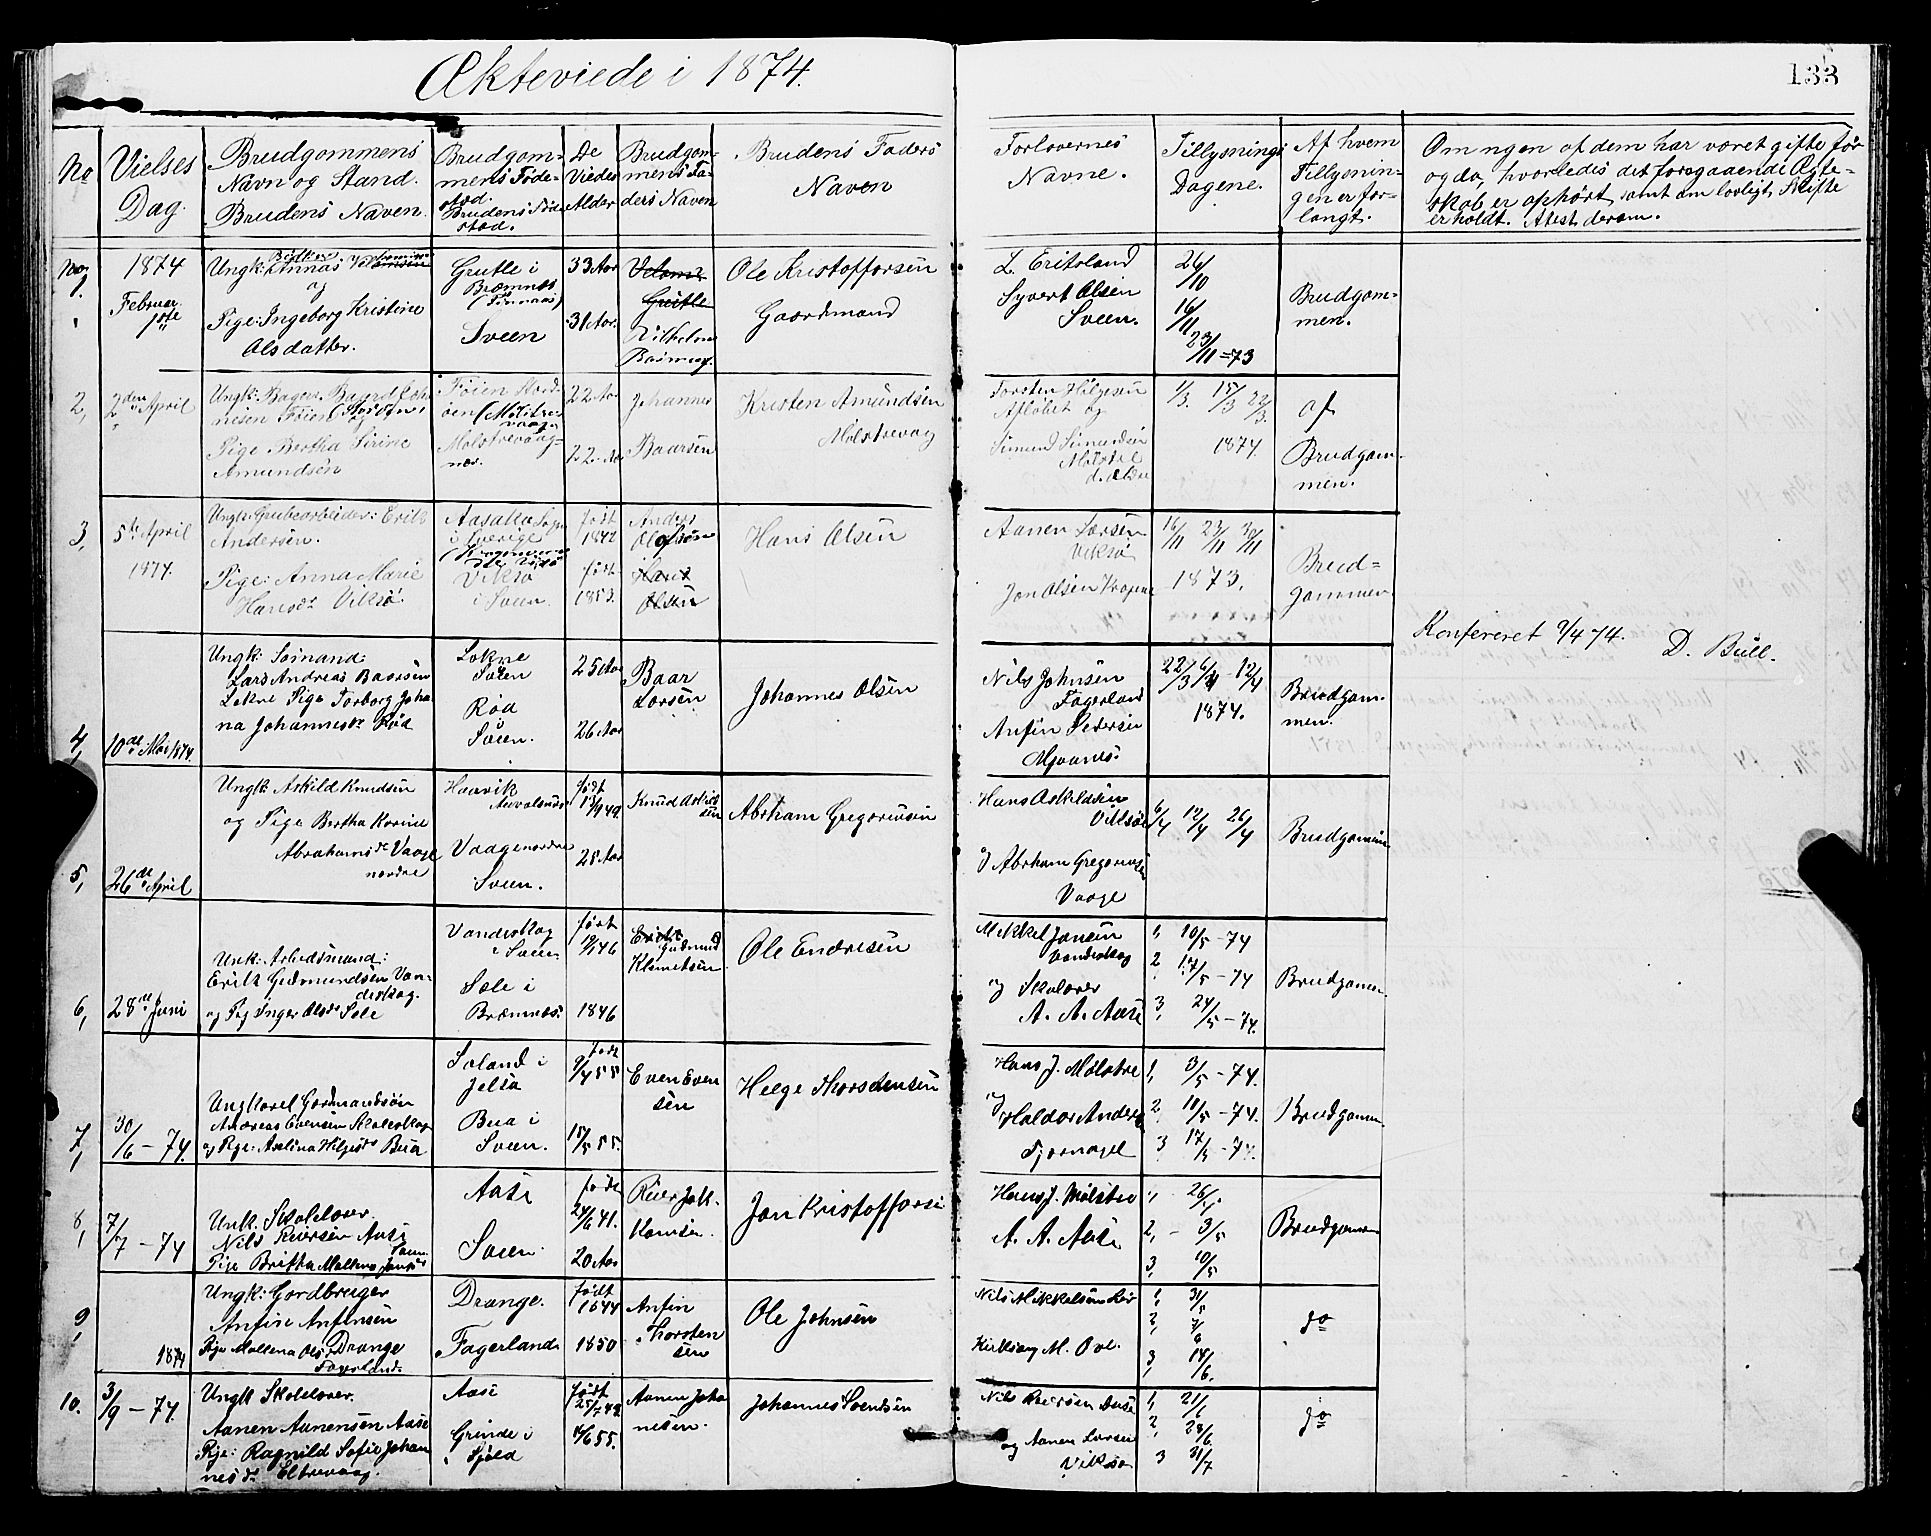 Ækteviede i 1874.
133
No
Vielses
Dag.
Brudgommens
Navn og Stand.
Brudens Naven.
Brudgom-
mens Føde-
sted.
Brudens Føde
sted.
De
Viedes
Alder
Brudgom-
mens Fa-
ders Naven
Brudens Faders
Naven
Forlovernes
Navne.
Tillysnings
Dagene.
Af hvem
Tillysnin-
gen er for-
langt.
Om ngen af dem har været gifte før
og da, hvorledis det foregaaende Ægte-
skab er ophørt samt om lovligt Skifte
erholdt. Atest derom.
No 1.
1874
Februar
1ste
Ungk: Annas
og
Pige: Ingeborg Kristine
Olsdatter.
Grutle i
Bræmnes
(Finnaas)
Sveen
33 Aar
31 Aar.
Grutle
Ole Kristoffersen
Gaardmand
L. Eritsland
Syvert Olsen
Sveen.
26/10
16/11
23/11 = 73
Brudgom-
men.
2,
2den April
Pige Bertha Sirine
Amundsen
22 Aar
22 Aar
Johannes
Baarsen
Kristen Amundsen
Molstrevag
Torsten Helgesen
og
Simund Simundsen
1/3. 15/3 22/3.
1874.
af
Brudgom-
men.
3,
5te April
1874.
Ungk: Grubearbeider: Erik
Andersen.
Pige: Anna Marie
Hansdr Viksø.
i Sverige
Viksø
i Sveen.
født
1842
født
1853.
Anders
Olofsøn
Hans
Olsen
Hans Olsen
Aanen Larsen
Viksø
Jon Olsen
16/11 23/11 30/11
1873.
Brud=
gommen
4,
10de Mai 1874.
Ungk: Sømand:
Lars Andreas Baarsen
Løkne Pige Torborg Joha
na Johannesdr Rød
Løkne
Sveen
Rød
Sveen.
25 Aar
26 Aar
Baar
Larsen
Johannes Olsen
Nils Johnsen
Fagerland
Anfin Pedersen
22/3 6/4 - 12/4
1874.
Brudgom-
men.
Konfereret 9/4 74. D. Bull.
5,
26de April
Ungk: Askild Knudsen
og Pige Bertha Karine
Abrahamsdr Vaage
nordre
Haavik
Vaage nordre
Sveen.
født
13/9 49.
28 Aar
Knud Askild
sen
Abrham Gregoriusen
Hans Askildsen
og Abrham Gregoriusen
Vaage
6/4 12/4 26/4
Brudgommen
6,
28de Juni
Unk: Arbeidsmand:
Erik Gudmundsen Van-
deskog.
og Pig Inger Olsdr Sele
Vandeskog
i Sveen
Sele i
Bræmnes
født
1846
Gudmund
Klemetsen
Ole Endresen
Mikkel Jonsen
Vandeskog
og Skolærer
A. A. Aase
1, 10/5 - 74
2, 17/5 - 74
3, 24/5 - 74.
Brudgomen
7,
30/6 - 74.
Andreas Evensen
og Pige: Aselina Helgesdr Bua
Søland i
Jelsa
Bua i
Sveen.
født
9/4 55
15/5 55.
Even Even
sen
Helge Thorstensen
Hans J. Molstre
og Haldor Anders
Tjernagel
1, 3/5 - 74.
2, 10/5 - 74.
3, 17/5 - 74.
Brudgomen
8,
7/7 - 74
Unk. Skolelærer.
Nils Reiersen Aase
Pige Britha Malena Jonsdr
Aase
Sveen
føde
24/6 41.
20 Aar
Reier
Jon Kristoffersen
Hans J. Molstre
A. A. Aase
1, 26/
2, - 3/5
3, 10/5
Brudgomen
9,
1874
Ungk: Gordbruger
Anfin Anfinsen
Drange
Pige Malena Olsdr
Fagerland.
Drange.
Fagerland.
født
1844
1850
Anfin
Thorsten
sen
Ole Johnsen
Nils Mikkelsen Lier
Kirksang M. Ove.
1, 31/5
2, 7/6
3, 14/6.
do
10.
3/9 - 74.
Ungk Skolelærer.
Aanen Aanensen Aase
Pige: Ragnild Sofie Johan
nesdr Eltrevaag.
Aase
Grinde i
Fjeld
født
25/7 49.
4/6 55.
Aanen Joha
nesen.
Johannes Svendsen
Nils Reiersen Aase
og Aanen Larsen
Viksø
1, 21/6
2, 28/6.
3 31/7
do